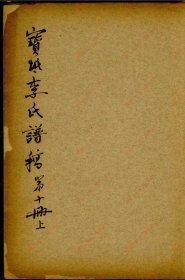 寶㘵李氏譜稿第十冊上